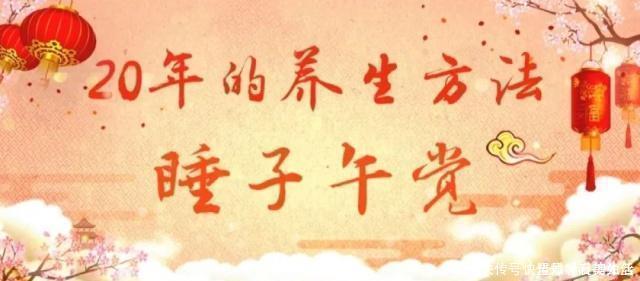 20年的养生方法
睡子午觉